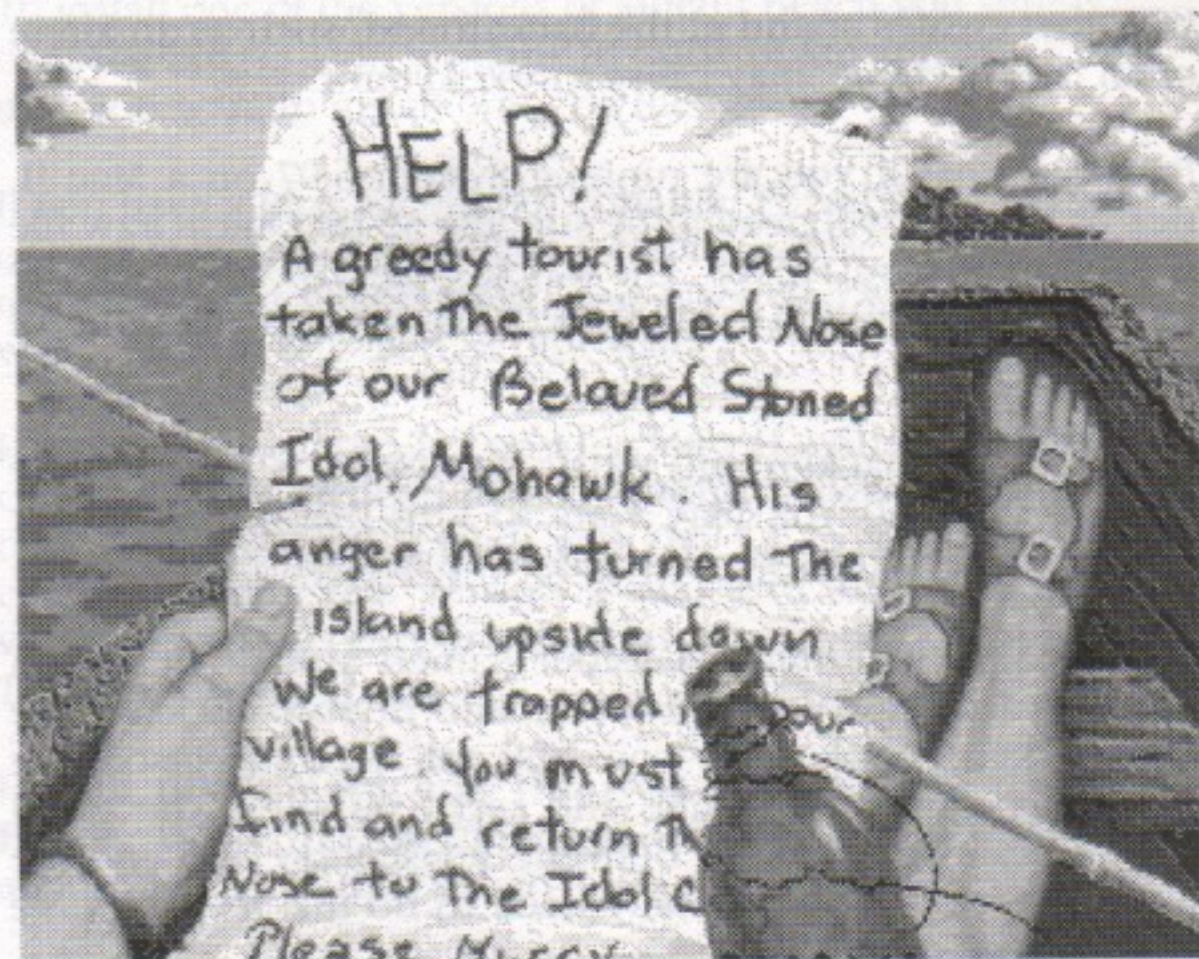 HELP!
A greedy tourist has
taken The Jeweled Nose
of our Beloved Stoned
Idol, Mohawk. His
anger has turned The
island upside down
We are trapped our
village. You must
find and return
Nose to The Idol
Please Hurry